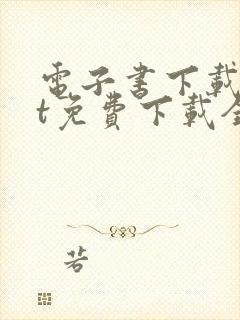 電子書下載
t免費下載全
若